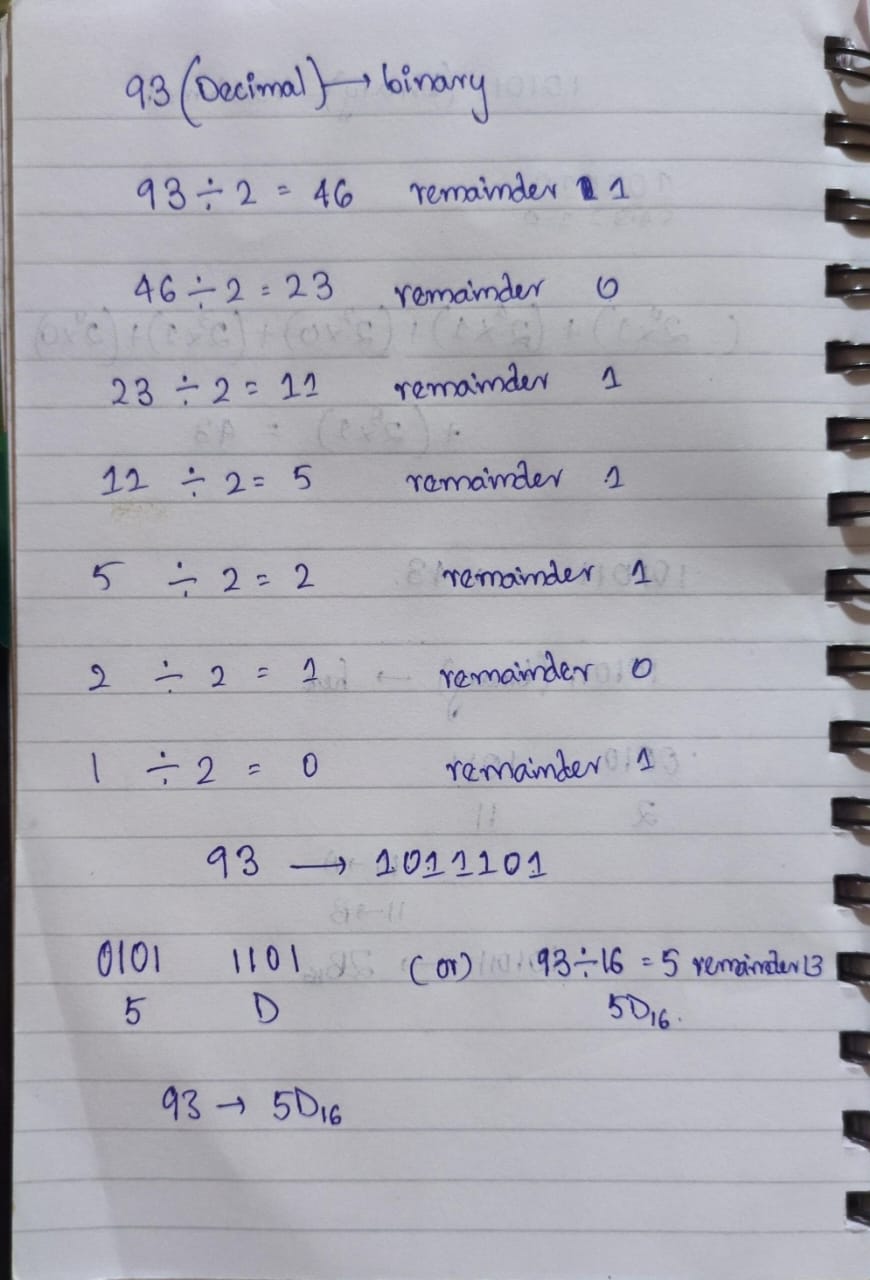 93 (Decimal) → binary
93 ÷ 2 = 46 remainder 1
46 ÷ 2 = 23 remainder 0
23 ÷ 2 = 11 remainder 1
11 ÷ 2 = 5 remainder 1
5 ÷ 2 = 2 remainder 1
2 ÷ 2 = 1 remainder 0
1 ÷ 2 = 0 remainder 1
93 → 1011101
0101 1101 (or) 93÷16 = 5 remainder 13
5 D 5D₁₆.
93 → 5D₁₆